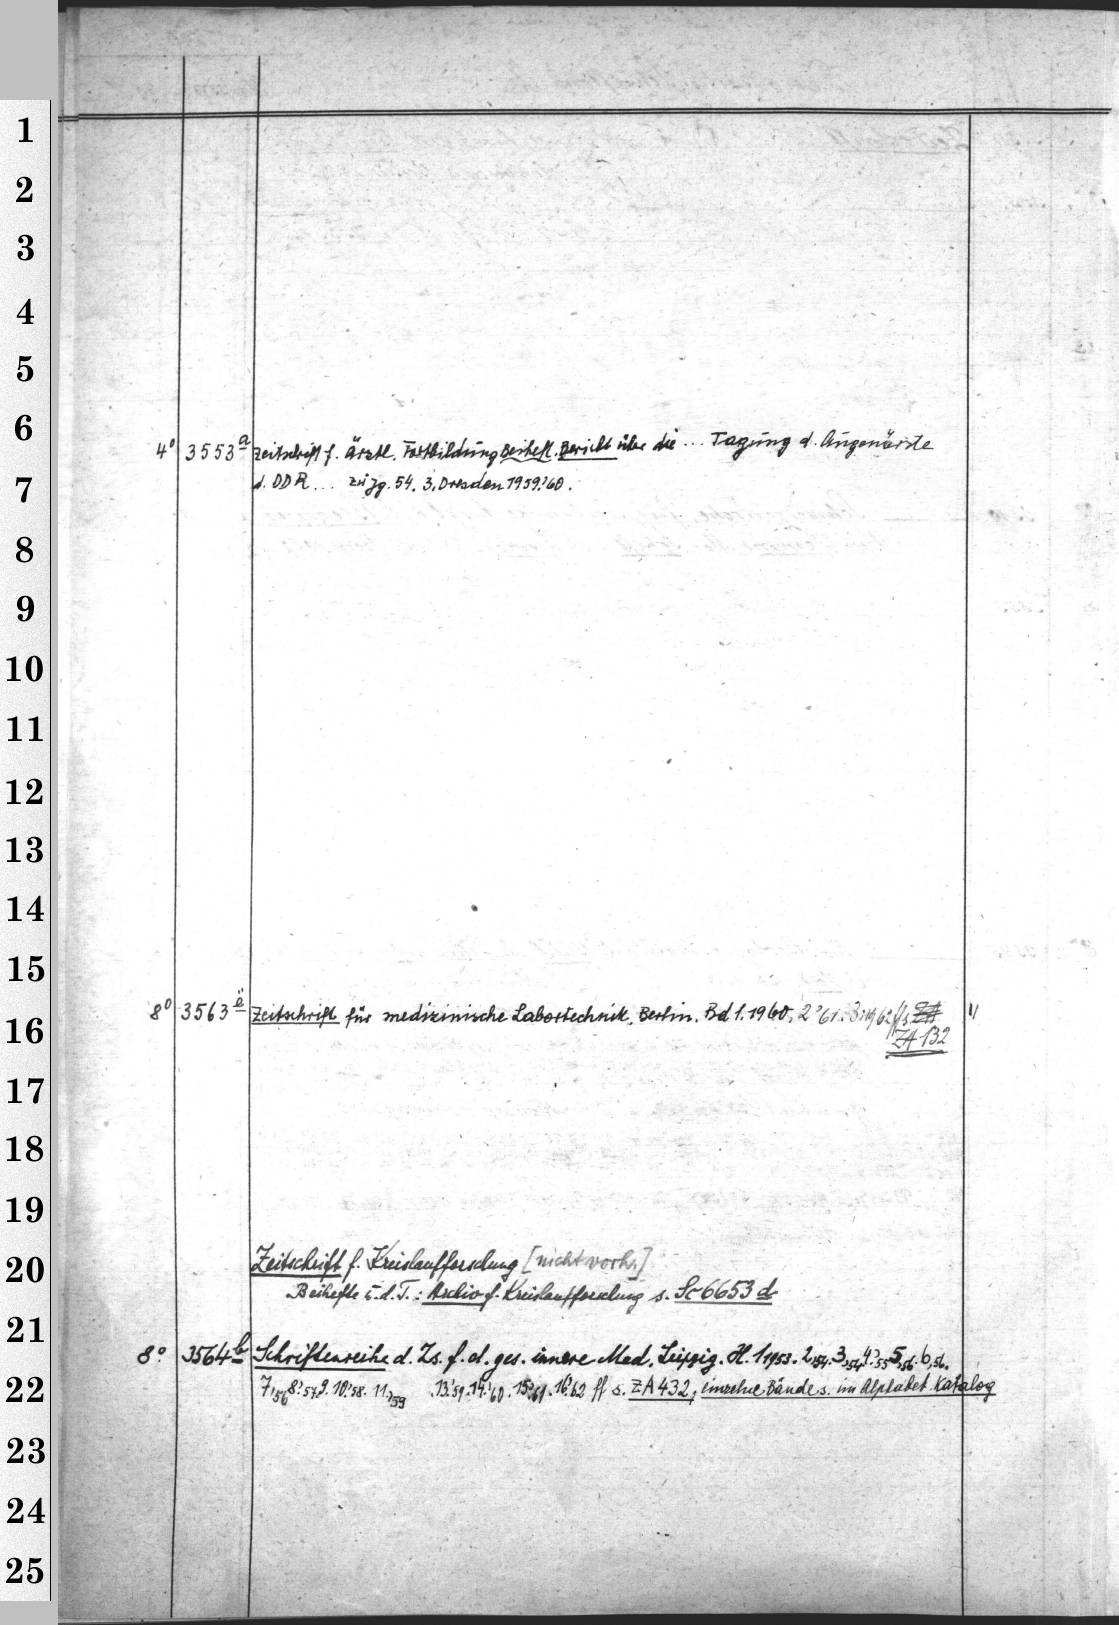 1
2
3
4
5
6
4° 3553a Zeitschrift f. Ärztl. Fortbildung Beiheft. Bericht über die ... Tagung d. Augenärzte
7
d. DDR ... zu Jg. 54. 3. Dresden 1959.'60.
8
9
10
11
12
13
14
15
16
8° 3563ë Zeitschrift für medizinische Labortechnik. Berlin. Bd 1. 1960. 2'61. 3.1962 ff s.
ZA 132
17
18
19
20
Zeitschrift f. Kreislaufforschung [nicht vorh.]
Beihefte u. d. T.: Archiv f. Kreislaufforschung s. Sc 6653 d
21
8° 3564b Schriftenreihe d. Zs. f. d. ges. innere Med. Leipzig. H. 1 1953. 2,54. 3,54. 4'55 5,56. 6,56.
22
7,56 8'57 9. 10'58. 11,59 13'59. 14'60. 15'61. 16'62 ff s. ZA 432, einzelne Bände s. im Alphabet. Katalog
23
24
25